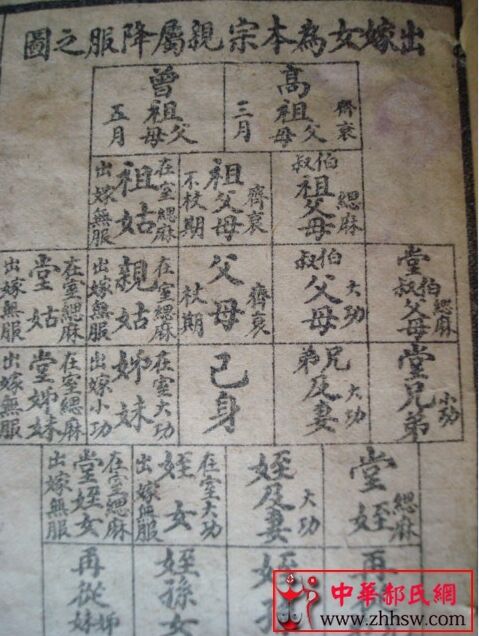 出嫁女為本宗親屬降服之圖
齊衰
高祖父母
三月
曾祖父母
五月
緦麻
伯叔祖父母
齊衰
祖父母
不杖期
在室緦麻
祖姑
出嫁無服
緦麻
堂伯叔父母
大功
伯叔父母
齊衰
父母
杖期
在室緦麻
親姑
出嫁無服
在室緦麻
堂姑
出嫁無服
小功
堂兄弟
大功
兄弟及妻
己身
在室大功
姊妹
出嫁小功
在室緦麻
堂姊妹
出嫁無服
緦麻
堂姪
大功
姪及妻
在室大功
姪女
出嫁無服
在室緦麻
堂姪女
出嫁無服
再
姪
姪孫女
再從姊妹
中華郝氏網
www.zhhsw.com